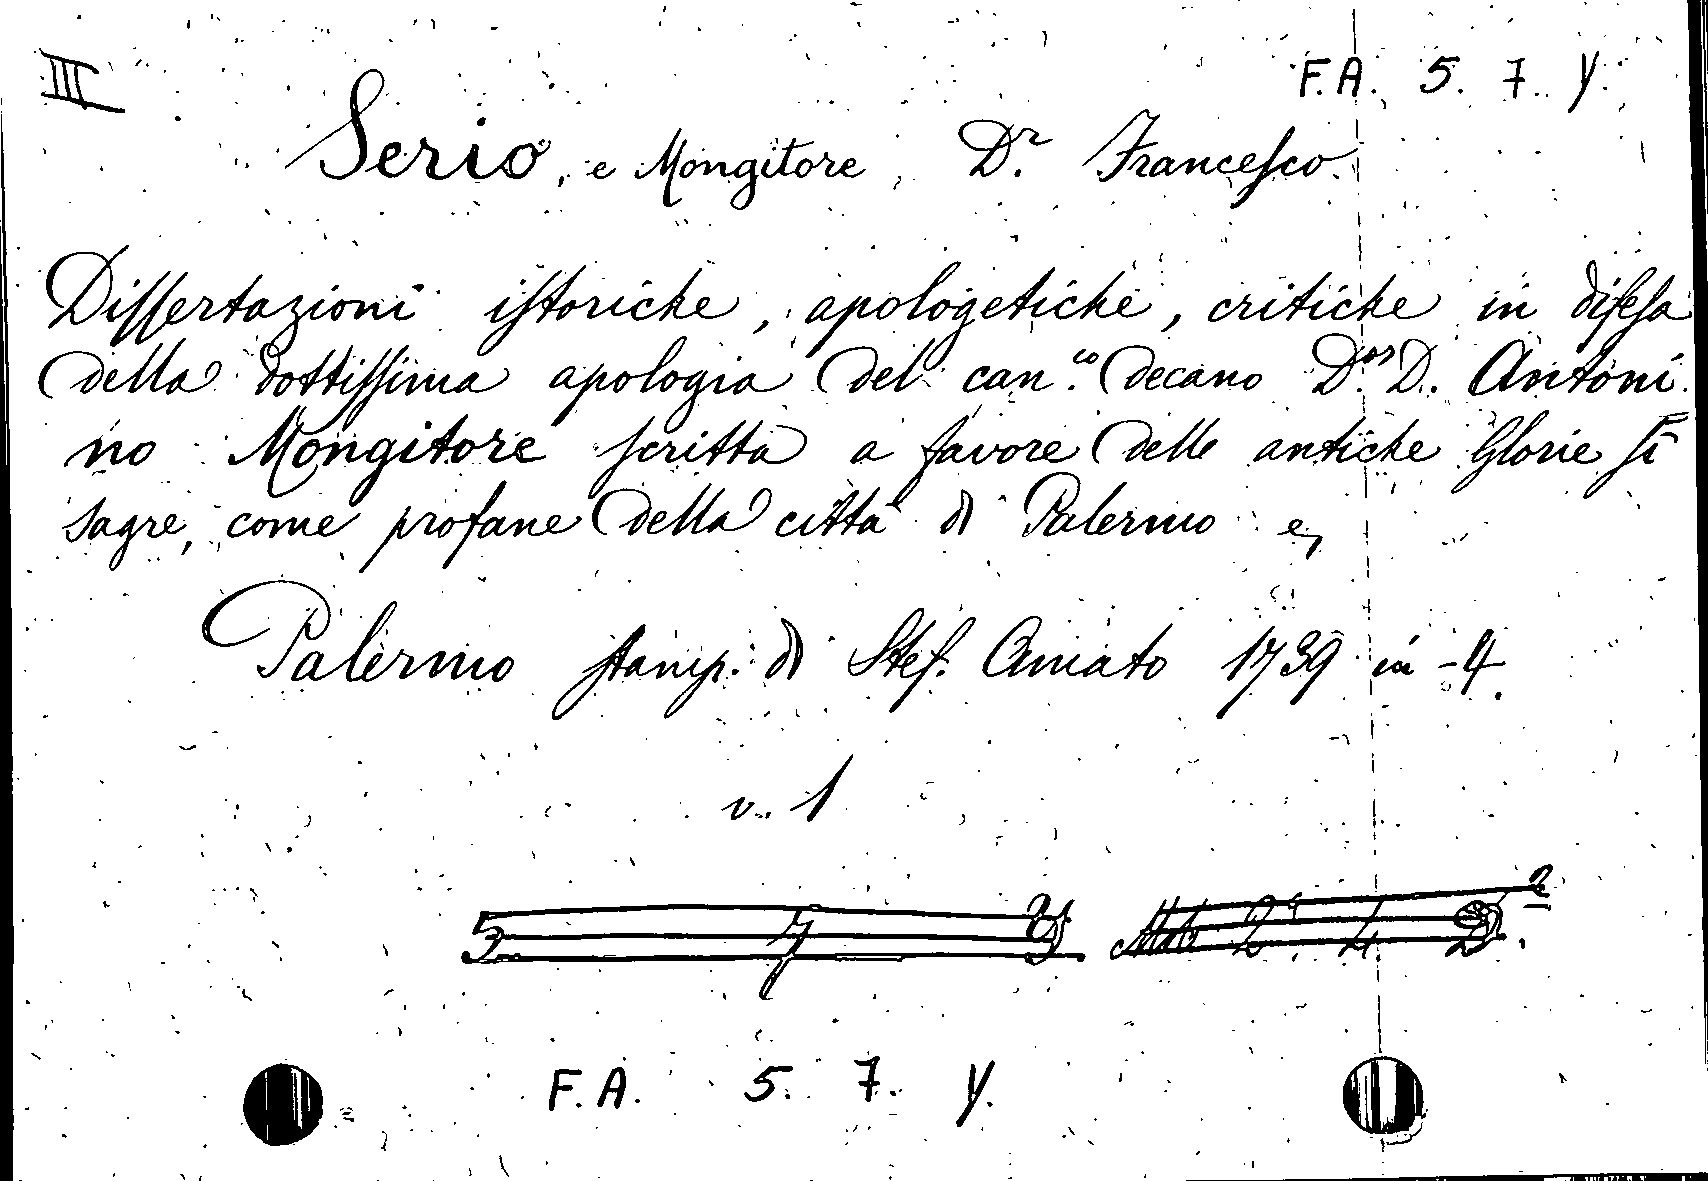 III F.A. 5. 7. Y.
Serio, e Mongitore, Dr. Francesco.
Dissertazioni istoriche, apologetiche, critiche in difesa
della dottissima apologia del can.co decano D.or D. Antoni
no Mongitore scritta a favore delle antiche Glorie sì
sagre, come profane della città di Palermo e,
Palermo stamp. di Stef. Amato 1739 in-4.
v. 1
5. 7 Y 2. 4. D. 2
F.A. 5. 7. Y.